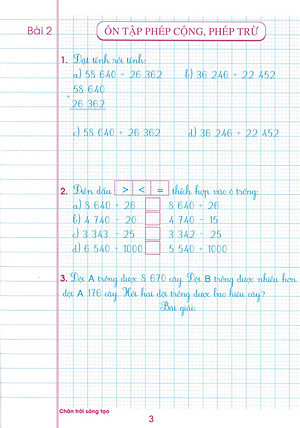 Bài 2
ÔN TẬP PHÉP CỘNG, PHÉP TRỪ
1. Đặt tính rồi tính:
a) 58 640 + 26 362 b) 36 246 + 22 452
58 640
+
26 362
c) 58 640 + 26 362 d) 36 246 + 22 452
2. Điền dấu > < = thích hợp vào ô trống:
a) 8 640 + 26 8 640 + 26
b) 4 740 - 20 4 740 - 15
c) 3 343 - 25 3 342 - 25
d) 6 540 + 1000 5 540 + 1000
3. Đội A trồng được 8 670 cây. Đội B trồng được nhiều hơn
đội A 176 cây. Hỏi hai đội trồng được bao nhiêu cây?
Bài giải:
Chân trời sáng tạo
3